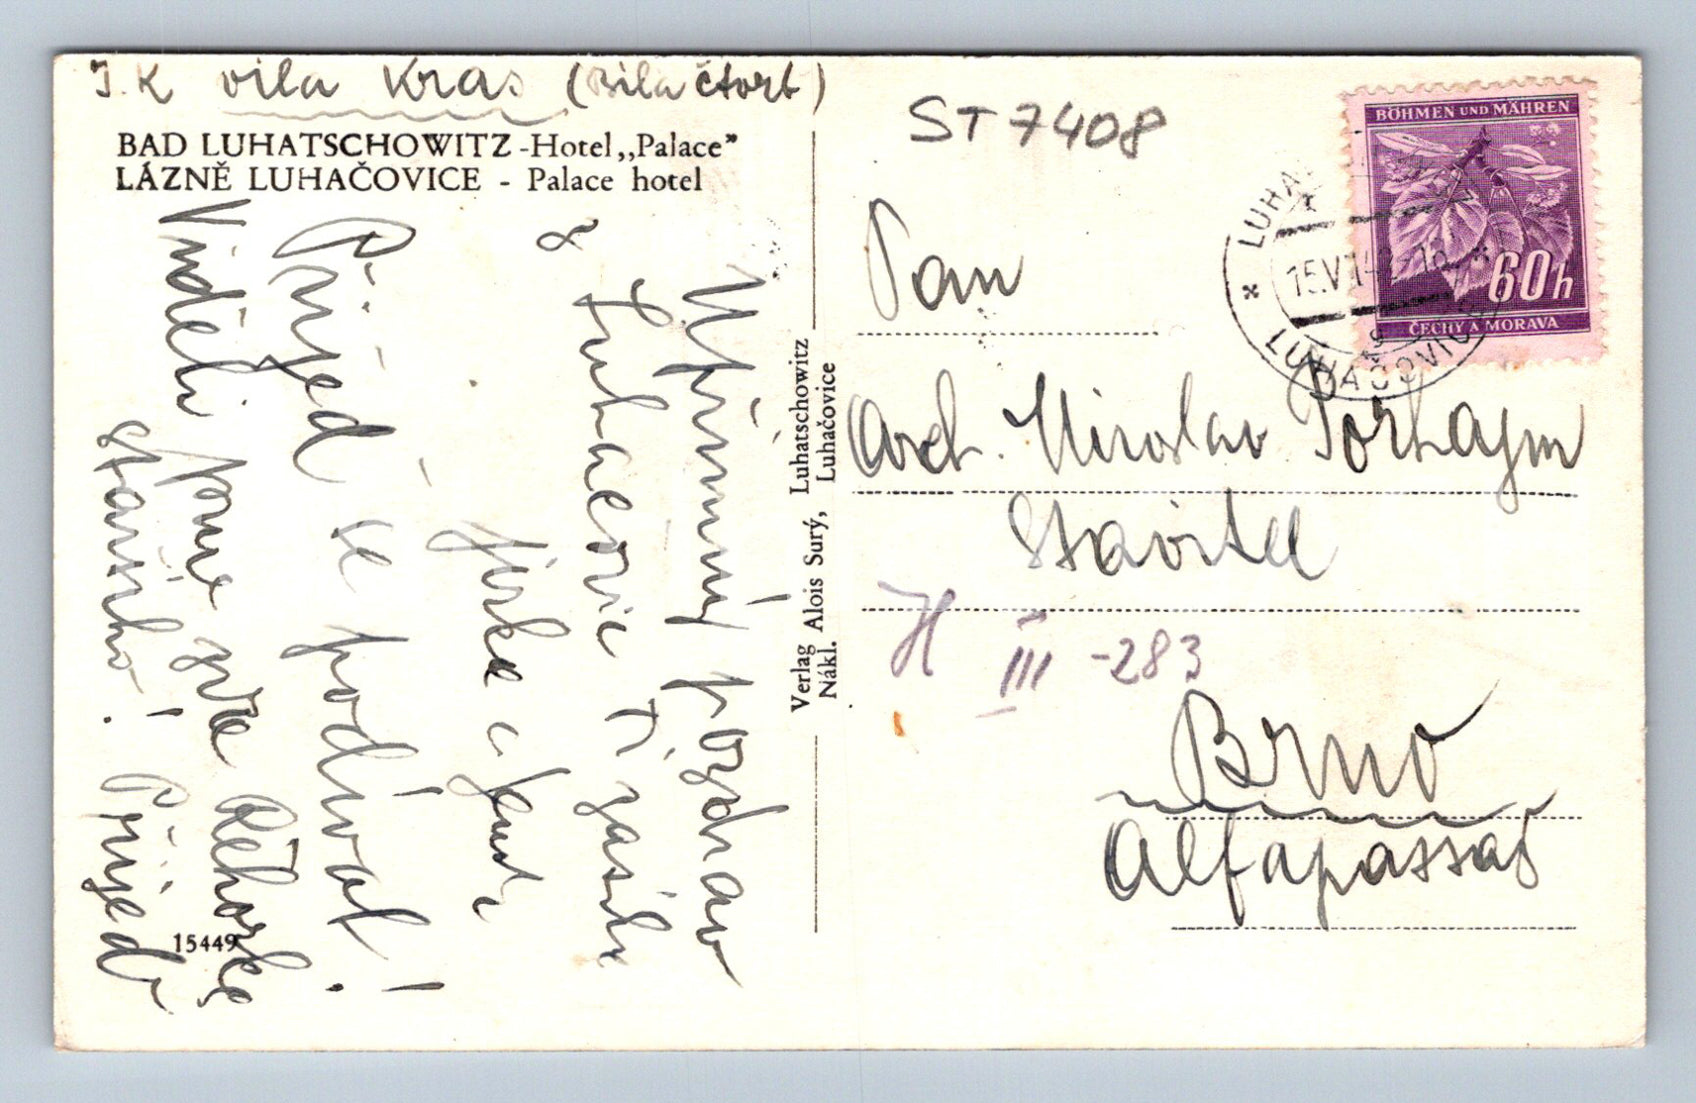 J.K. vila Kras (Bílá čtvrť)
BAD LUHATSCHOWITZ - Hotel „Palace”
LÁZNĚ LUHAČOVICE - Palace hotel
Upřímný pozdrav
z
Luhačovic Ti zasílá
Jirka a
Přijeď se podívat!
Viděli jsme zde Řehořke
staršího! Přijeď
15449
Verlag Alois Surý, Luhatschowitz
Nákl. Luhačovice
ST 7408
BÖHMEN UND MÄHREN
60h
ČECHY A MORAVA
LUHAČOVICE
Pan
Arch. Miroslav Porhajm
stavitel
H III -283
Brno
Alfapassaž